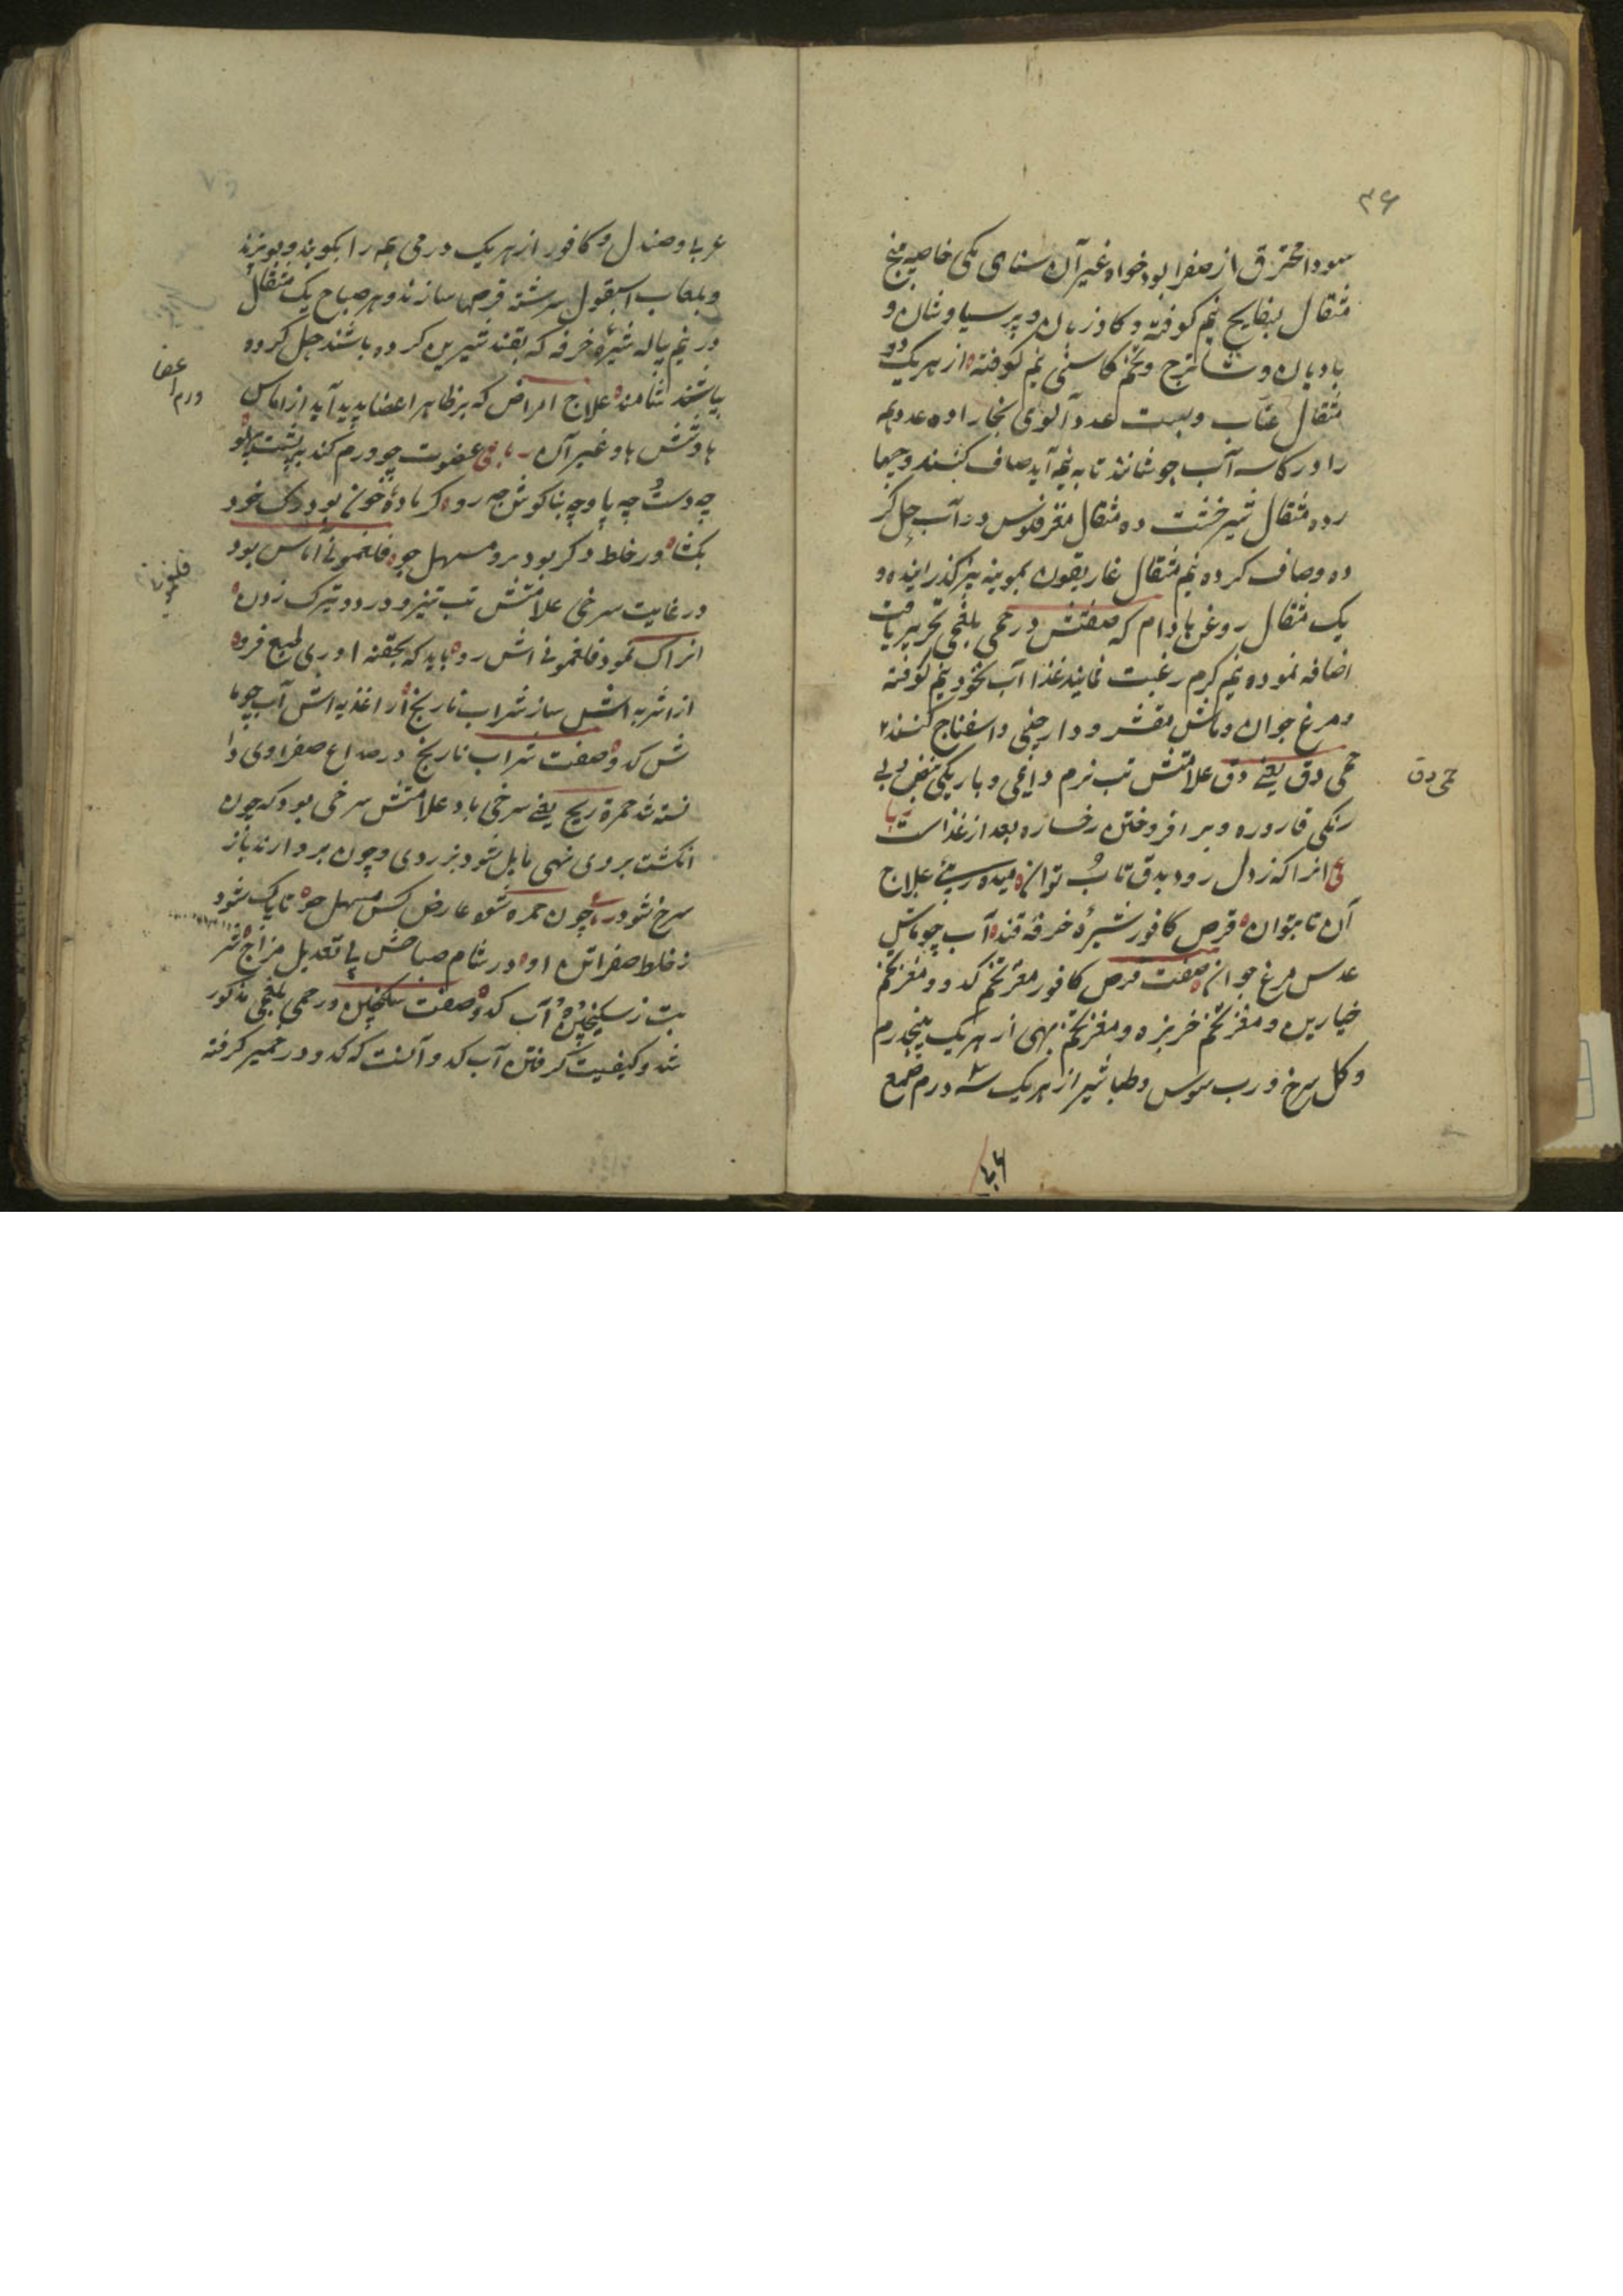 ۳۶
سودا محترق از صفرا بود خواه غیر آن سنای مکی خاصه پنج
مثقال بسفایج نیم کوفته و کاوزبان و پرسیاوشان و
بادیان و شاهترج و تخم کاسنی نیم کوفته از هریک دو
مثقال عناب و بیست عدد آلوی بخارا ده عدد همه
را در کاسه آب جوشانند تا به نیمه آید صاف کنند و جهار
ده مثقال شیرخشت ده مثقال مغز فلوس در آب حل کر
ده و صاف کرده نیم مثقال غاریقون بموینه بیز کذرانیده و
یک مثقال روغن بادام که صفتش در حمی بلغمی تحریر یافت
اضافه نموده نیم کرم رغبت نمایند غذا آب نخود نیم کوفته
و مرغ جوان و ماش مقشر و دارچینی و اسفناج کنند
حمی دق یعنی دق علامتش تب نرم دایمی و باریکی نبض و بی
رنکی قاروره و بر افروختن رخساره بعد از غذاست
انرا که ز دل رود بدق تاب توان میده علاج
آن تا بتوان قرص کافور شیرهٔ خرفه قند آب جو ماش
عدس مرغ جوان صفت قرص کافور مغز تخم کدو و مغز تخم
خیارین و مغز تخم خربزه و مغز تخم بهی از هریک پنجدرم
و کل سرخ و رب سوس و طباشیر از هریک سه درم صمغ
حمی دق
عربی و صندل و کافور از هریک درمی همه را بکوبند و ببیزند
و بلعاب اسبغول سرشته قرصها سازند و هر صباح یک مثقال
در نیم پیاله شیرهٔ خرفه که بقند شیرین کرده باشند حل کرده
بیاشند ثامنه علاج امراض که بر ظاهر اعضا پدید آید از اماس
ها و تشش ها و غیر آن عضوت چو ورم کند پشت پهلو
چه دست چه پا و چه بناکوش چه رو کر مادهٔ خون بود رک خود
بکشا ور خلط دکر بود برو مسهل جو فلغمونی اماس بود
در غایت سرخی علامتش تب تیز و درد و تیرک زدن
انراکه نمود فلغمونی اش رو باید که بحقنه اوری طبع فرو
از اشربه اش ساز شراب نارنج از اغذیه اش آب جو ما
ش کدو صفت شراب نارنج در صداع صفراوی دا
نسته شد حمره ریح یعنی سرخی باد علامتش سرخی بود که چون
انکشت بروی نهی مایل شود بزردی و چون بردارند باز
سرخ شود چون حمره شود عارض کس مسهل جو تا پاک شود
ز خلط صفرا تن او در شام صباحش پی تعدیل مزاج شر
بت ز سکنجبین و آب کدو صفت سکنجبین در حمی بلغمی مذکور
شد و کیفیت کرفتن آب کدو آنست که کدو در خمیر کرفته
ورم اعضا